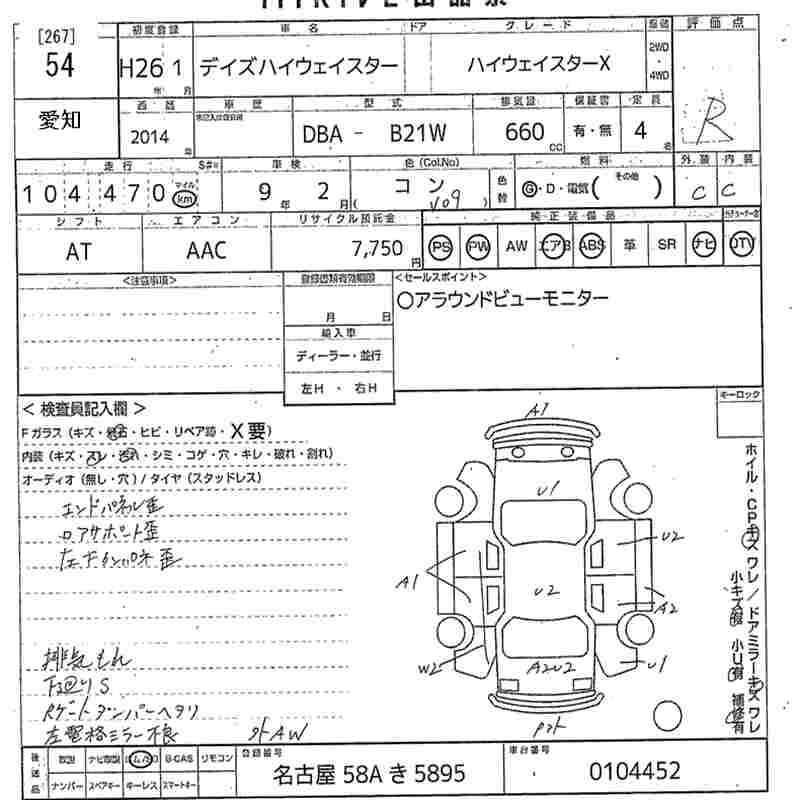 [267]
54
愛知
初度登録 車名 ドア グレード 装備 評価点
H26 1 デイズハイウェイスター ハイウェイスターX 2WD・4WD R
年 月
西暦 車歴 型式 排気量 保証書 定員
2014 年 DBA - B21W 660 CC 有・無 4 名
走行 S#※ 車検 色(Col.No) 色替 燃料 外装 内装
104470 マイル km 9年 2月 コン V09 G・D・電気( その他 ) C C
シフト エアコン リサイクル預託金 純正装備品
AT AAC 7,750 円 PS PW AW エアB ABS 革 SR ナビ DTV
<注意事項> 登録書類有効期限 <セールスポイント>
月 日 〇アラウンドビューモニター
輸入車
ディーラー・並行
左H ・ 右H
<検査員記入欄> キーロック
Fガラス (キズ・飛石・ヒビ・リペア跡・X要)
内装 (キズ・スレ・汚れ・シミ・コゲ・穴・キレ・破れ・割れ)
オーディオ (無し・穴) / タイヤ (スタッドレス)
エンドパネル歪
ロアサポート歪
排気もれ
Rゲートダンパーヘタリ
左電格ミラー不良 外AW
A1
U1
U2
A1
U2
A2
W2
A2U2
U1
ホイル・CPキズ ワレ/ドアミラーキズ ワレ
小キズ有 小U有 補修有
後送品 取説 ナビ取説 B-CAS リモコン 登録番号 車台番号
ナンバー スペアキー キーレス スマートキー 名古屋 58A き 5895 0104452